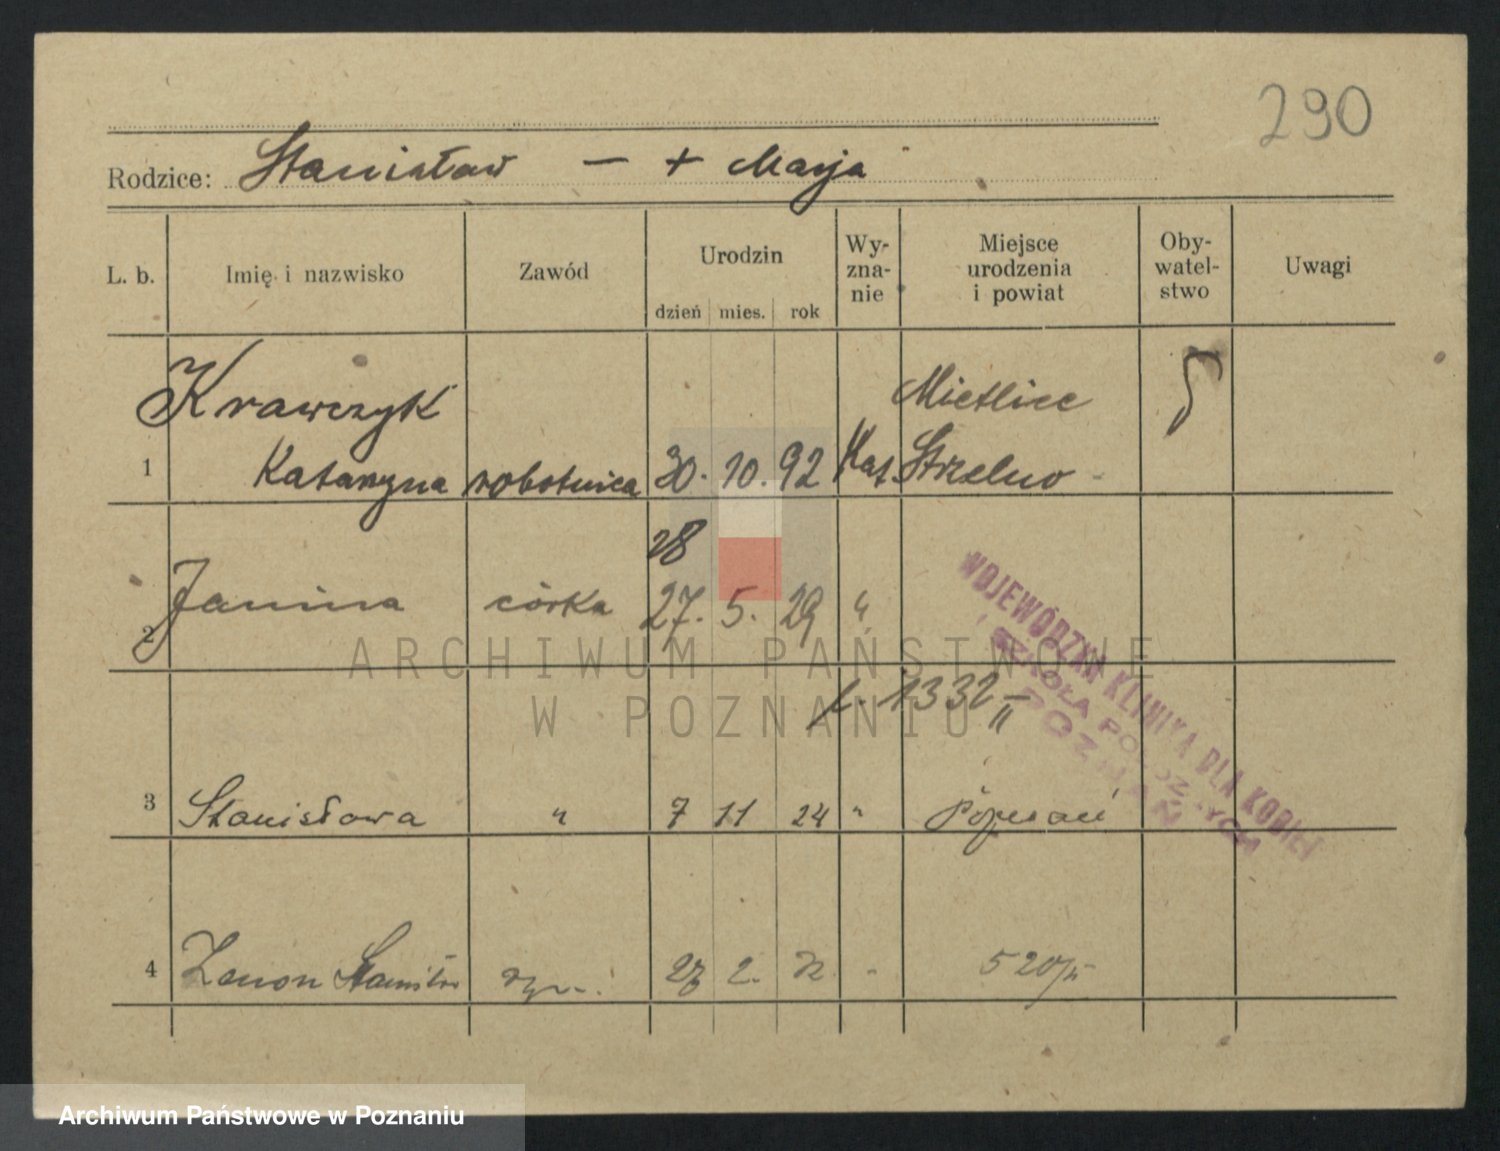 290
Rodzice: Stanisław — + Marja
L. b. Imię i nazwisko Zawód Urodzin dzień mies. rok Wy-zna-nie Miejsce urodzenia i powiat Oby-watel-stwo Uwagi
Krawczyk Mietlice
1 Katarzyna robotnica 30. 10. 92 Kat. Strzelno
28
2 Janina córka 27. 5. 29 "
1332 II
3 Stanisława " 7 11 24 "
4 Zenon 2.
WOJEWÓDZKA KLINIKA DLA KOBIET
I SZKOŁA POŁOŻNYCH
POZNAŃ
ARCHIWUM PAŃSTWOWE
W POZNANIU
Archiwum Państwowe w Poznaniu